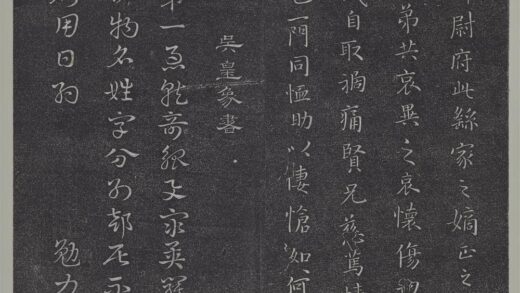 尉府此繇家之嫡正之
弟共哀異之哀懷傷
自取禍痛賢兄慈篤情
一門同恤助以悽愴如何
吳皇象書
第一急就奇觚与衆異羅
物名姓字分別部居不
用日約 勉力